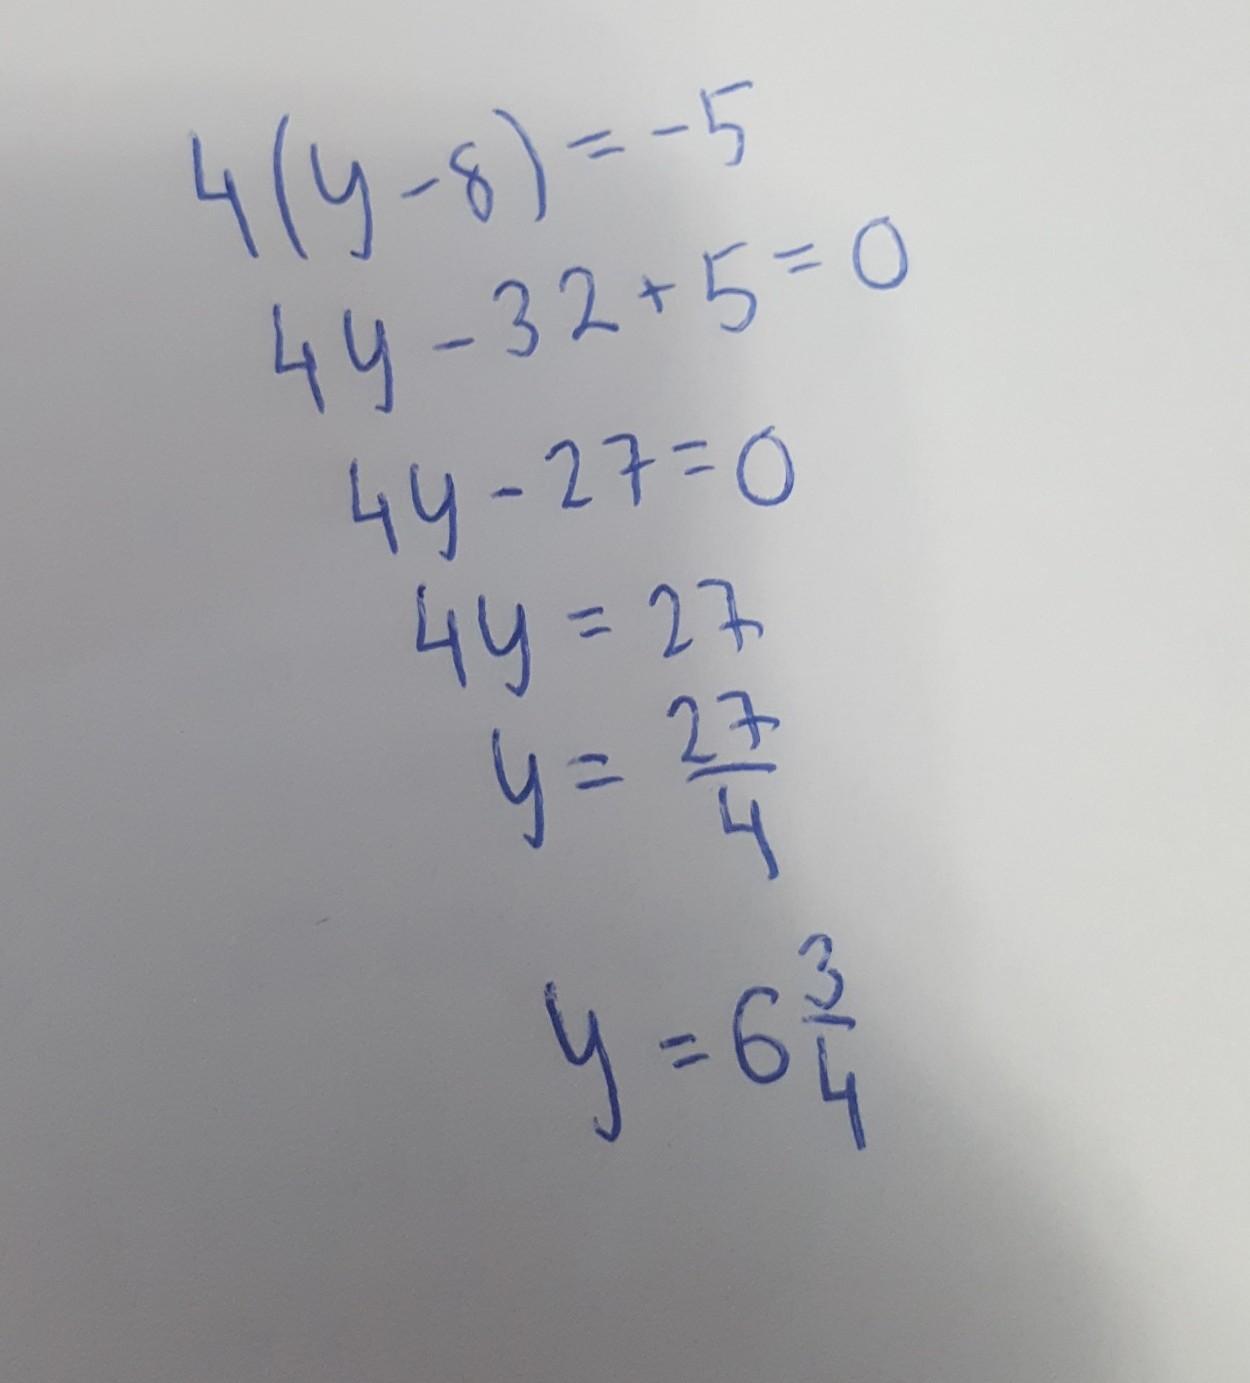 4(y-8)=-5
4y-32+5=0
4y-27=0
4y=27
y=27/4
y=6 3/4